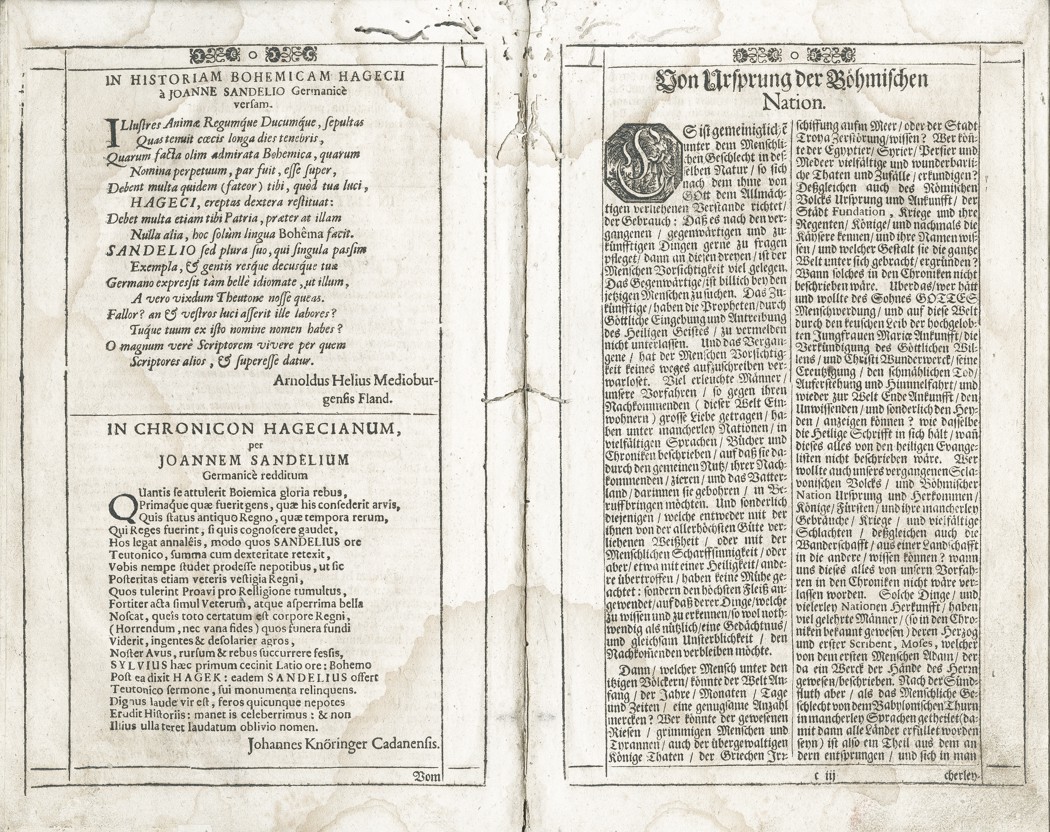 IN HISTORIAM BOHEMICAM HAGECII
à JOANNE SANDELIO Germanicè
versam.
ILlustres Animæ Regumq́ue Ducumq́ue, sepultas
Quas tenuit cœcis longa dies tenebris,
Quarum facta olim admirata Bohemica, quarum
Nomina perpetuum, par fuit, esse super,
Debent multa quidem (fateor) tibi, quòd tua luci,
HAGECI, ereptas dextera restituat:
Debet multa etiam tibi Patria, præter at illam
Nulla alia, hoc solùm lingua Bohêma facit.
SANDELIO sed plura suo, qui singula passim
Exempla, & gentis resque decusque tuæ
Germano expressit tàm bellè idiomate, ut illum,
A vero vixdum Theutone nosse queas.
Fallor? an & vestros luci asserit ille labores?
Tuque tuum ex isto nomine nomen habes?
O magnum verè Scriptorem vivere per quem
Scriptores alios, & superesse datur.
Arnoldus Helius Mediobur-
gensis Fland.
IN CHRONICON HAGECIANUM,
per
JOANNEM SANDELIUM
Germanicè redditum
QUantis se attulerit Boiemica gloria rebus,
Primaq́ue quæ fuerit gens, quæ his consederit arvis,
Quis status antiquo Regno, quæ tempora rerum,
Qui Reges fuerint, si quis cognoscere gaudet,
Hos legat annalêis, modo quos SANDELIUS ore
Teutonico, summa cum dexteritate retexit,
Vobis nempe studet prodesse nepotibus, ut sic
Posteritas etiam veteris vestigia Regni,
Quos tulerint Proavi pro Relligione tumultus,
Fortiter acta simul Veterum, atque asperrima bella
Noscat, queis toto certatum est corpore Regni,
(Horrendum, nec vana fides) quos funera fundi
Viderit, ingentes & desolarier agros,
Noster Avus, rursum & rebus succurrere fessis,
SYLVIUS hæc primum cecinit Latio ore: Bohemo
Post ea dixit HAGEK: eadem SANDELIUS offert
Teutonico sermone, sui monumenta relinquens.
Dignus laude vir est, feros quicunque nepotes
Erudit Historiis: manet is celeberrimus: & non
Illius ulla teret laudatum oblivio nomen.
Johannes Knöringer Cadanensis.
Vom
Von Ursprung der Böhmischen
Nation.
ES ist gemeiniglich ẽ
unter dem Menschli-
chen Geschlecht in des-
selben Natur / so sich
nach dem ihme von
GOtt dem Allmäch-
tigen verliehenen Verstande richtet /
der Gebrauch: Daß es nach den ver-
gangenen / gegenwärtigen und zu-
künfftigen Dingen gerne zu fragen
pfleget / dann an diesen dreyen / ist der
Menschen Vorsichtigkeit viel gelegen.
Das Gegenwärtige / ist billich bey den
jetzigen Menschen zu suchen. Das Zu-
künfftige / haben die Propheten / durch
Göttliche Eingebung und Antreibung
des Heiligen Geistes / zu vermelden
nicht unterlassen. Und das Vergan-
gene / hat der Menschen Vorsichtig-
keit keines weges auffzuschreiben ver-
warloset. Viel erleuchte Männer /
unsere Vorfahren / so gegen ihren
Nachkommenden (dieser Welt Ein-
wohnern) grosse Liebe getragen / ha-
ben unter mancherley Nationen / in
vielfältigen Sprachen / Bücher und
Chroniken beschrieben / auf daß sie da-
durch den gemeinen Nutz / ihrer Nach-
kommenden / zieren / und das Vatter-
land / darinnen sie gebohren / in Be-
ruff bringen möchten. Und sonderlich
diejenigen / welche entweder mit der
ihnen von der allerhöchsten Güte ver-
liehenen Weißheit / oder mit der
Menschlichen Scharffsinnigkeit / oder
aber / etwa mit einer Heiligkeit / ande-
re übertroffen / haben keine Mühe ge-
achtet: sondern den höchsten Fleiß an-
gewendet / auf daß derer Dinge / welche
zu wissen und zu erkennen / so wol noth-
wendig als nützlich / eine Gedächtnus /
und gleichsam Unsterblichkeit / den
Nachkom̃enden verbleiben möchte.
Dann / welcher Mensch unter den
itzigen Völckern / könnte der Welt An-
fang / der Jahre / Monaten / Tage
und Zeiten / eine genugsame Anzahl
mercken? Wer könnte der gewesenen
Riesen / grimmigen Menschen und
Tyrannen / auch der übergewaltigen
Könige Thaten / der Griechen Irr-
schiffung aufm Meer / oder der Stadt
Troya Zerstörung / wissen? Wer kön-
te der Egyptier / Syrier / Persier und
Medeer vielfältige und wunderbarli-
che Thaten und Zufälle / erkundigen?
Deßgleichen auch des Römischen
Volcks Ursprung und Ankunfft / der
Städt Fundation, Kriege und ihre
Regenten / Könige / und nachmals die
Käysere kennen / und ihre Namen wis-
sen / und welcher Gestalt sie die gantze
Welt unter sich gebracht / ergründen?
Wann solches in den Chroniken nicht
beschrieben wäre. Uberdas / wer hätt
und wollte des Sohnes GOTTES
Menschwerdung / und auf diese Welt
durch den keuschen Leib der hochgelob-
ten Jungfrauen Mariæ Ankunfft / die
Verkündigung des Göttlichen Wil-
lens / und Christi Wunderwerck / seine
Creutzigung / den schmählichen Tod /
Aufferstehung und Himmelfahrt / und
wieder zur Welt Ende Ankunfft / den
Unwissenden / und sonderlich den Hey-
den / anzeigen können? wie dasselbe
die Heilige Schrifft in sich hält / wañ
dieses alles von den heiligen Evange-
listen nicht beschrieben wäre. Wer
wollte auch unsers vergangenen Scla-
vonischen Volcks / und Böhmischer
Nation Ursprung und Herkommen /
Könige / Fürsten / und ihre mancherley
Gebräuche / Kriege / und vielfältige
Schlachten / deßgleichen auch die
Wanderschafft / aus einer Landschafft
in die andere / wissen können? wann
uns dieses alles von unsern Vorfah-
ren in den Chroniken nicht wäre ver-
lassen worden. Solche Dinge / und
vielerley Nationen Herkunfft / haben
viel gelehrte Männer / (so in den Chro-
niken bekannt gewesen) deren Herzog
und erster Scribent, Moses, welcher
von dem ersten Menschen Adam / der
da ein Werck der Hände des Herrn
gewesen / beschrieben. Nach der Sünd-
fluth aber / als das Menschliche Ge-
schlecht von dem Babylonischen Thurn
in mancherley Sprachen getheilet (da-
mit dann alle Länder erfüllet worden
seyn) ist also ein Theil aus dem an-
dern entsprungen / und sich in man
c iij
cherley-